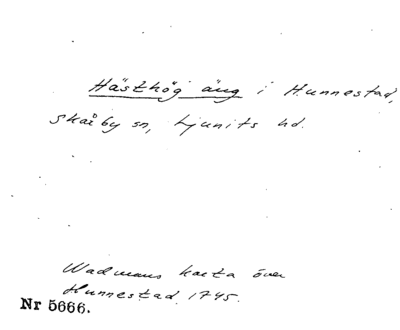 Hästhög äng i Hunnestad,
Skårby sn, Ljunits hd.
Wadmans karta över
Hunnestad. 1745.
Nr 5666.